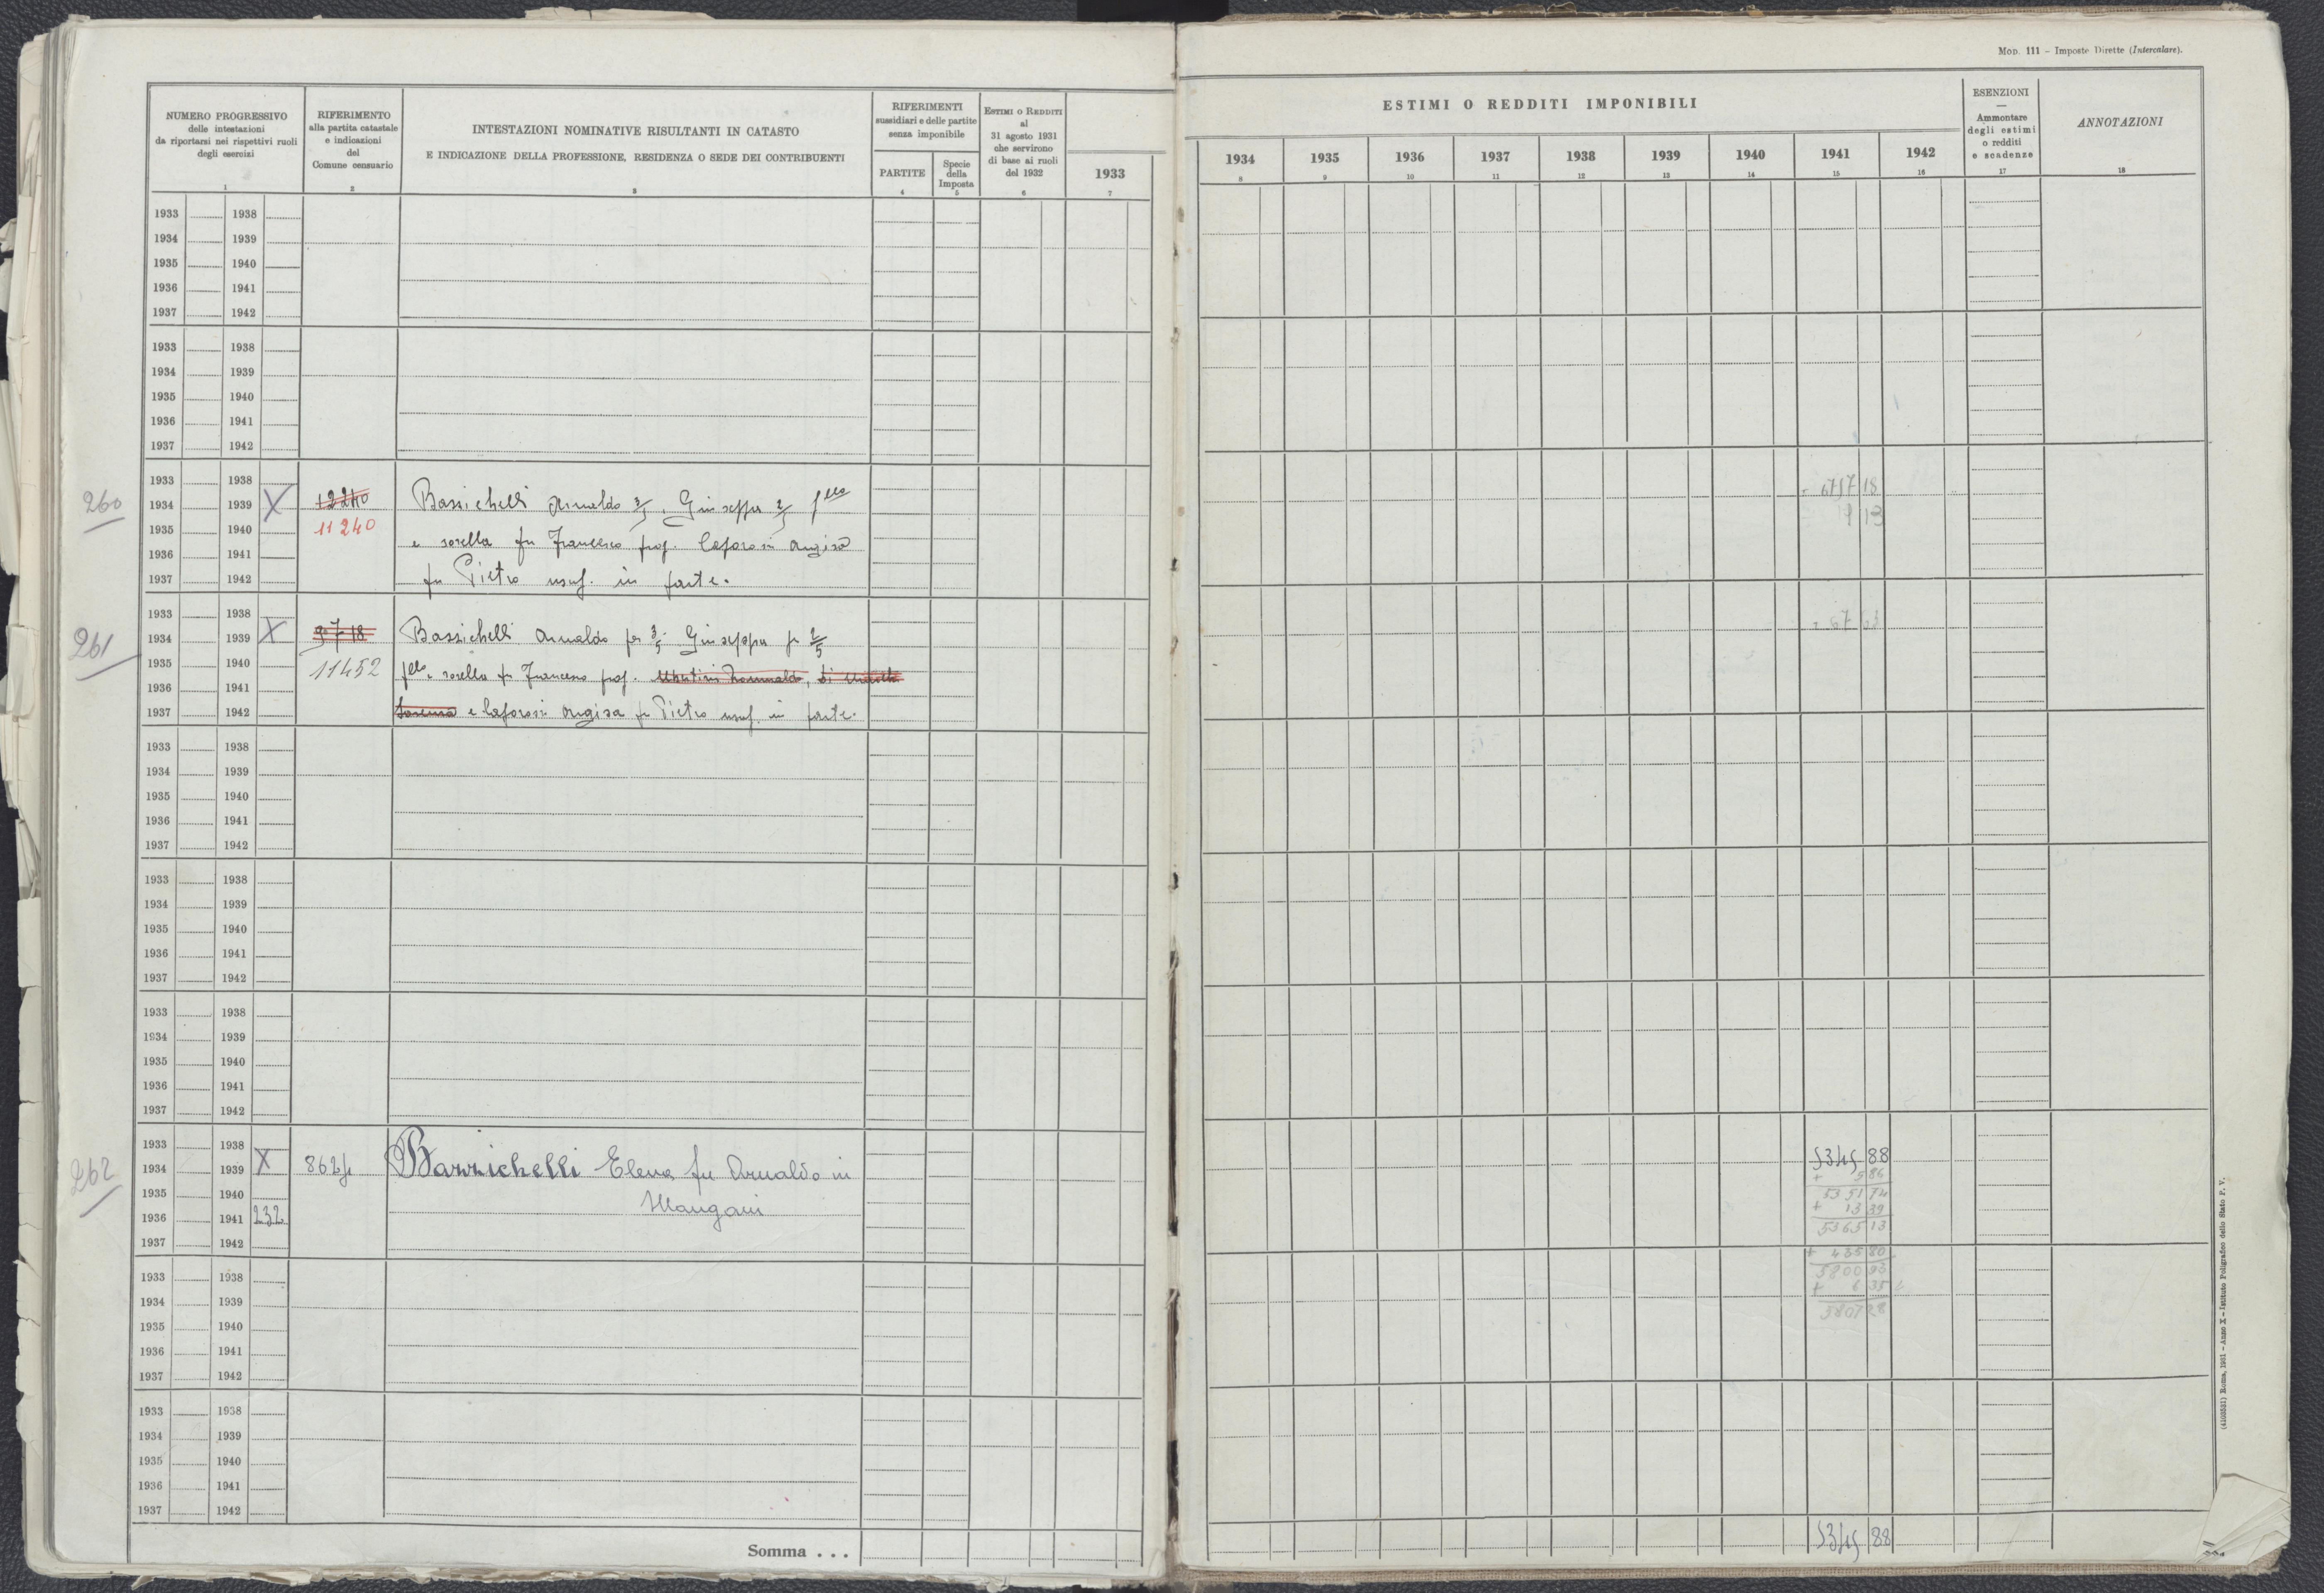 Mod. 111 – Imposte Dirette (Intercalare).
NUMERO PROGRESSIVO
delle intestazioni
da riportarsi nei rispettivi ruoli
degli esercizi
1
RIFERIMENTO
alla partita catastale
e indicazioni
del
Comune censuario
2
INTESTAZIONI NOMINATIVE RISULTANTI IN CATASTO
E INDICAZIONE DELLA PROFESSIONE, RESIDENZA O SEDE DEI CONTRIBUENTI
3
RIFERIMENTI
sussidiari e delle partite
senza imponibile
PARTITE
4
Specie
della
Imposta
5
ESTIMI O REDDITI
al
31 agosto 1931
che servirono
di base ai ruoli
del 1932
6
1933
7
ESTIMI O REDDITI IMPONIBILI
1934 1935 1936 1937 1938 1939 1940 1941 1942
8 9 10 11 12 13 14 15 16
ESENZIONI
—
Ammontare
degli estimi
o redditi
e scadenze
17
ANNOTAZIONI
18
1933 1938
1934 1939
1935 1940
1936 1941
1937 1942
1933 1938
1934 1939
1935 1940
1936 1941
1937 1942
1933 1938
260 1934 1939 X 12240 Bassichelli Arnaldo 3/5, Giuseppa 2/5 f.llo
1935 1940 11240 e sorella fu Francesco prop.
1936 1941
1937 1942 fu Pietro usuf. in parte.
1933 1938
261 1934 1939 X 9718 Bassichelli Arnaldo per 3/5 Giuseppa per 2/5
1935 1940 11452 f.llo e sorella fu Francesco prop.
1936 1941
1937 1942 e fu Pietro usuf. in parte.
1933 1938
1934 1939
1935 1940
1936 1941
1937 1942
1933 1938
1934 1939
1935 1940
1936 1941
1937 1942
1933 1938
1934 1939
1935 1940
1936 1941
1937 1942
1933 1938 X
262 1934 1939 Bazzichelli Elena fu Arnaldo in
1935 1940 Mangani
1936 1941 232
1937 1942
5345 88
+ 5 86
5351 74
+ 13 39
5365 13
+ 435 80
5800 93
+ 6 35
5807 28
1933 1938
1934 1939
1935 1940
1936 1941
1937 1942
1933 1938
1934 1939
1935 1940
1936 1941
1937 1942
Somma . . . 5345 88
(4103531) Roma, 1931 – Anno X – Istituto Poligrafico dello Stato P. V.